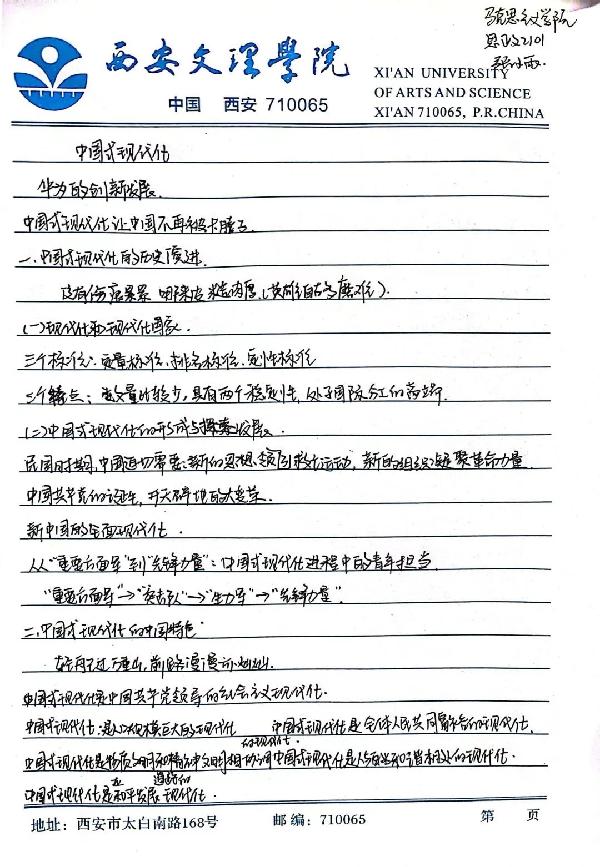 马克思主义学院
思政2101
西安文理學院
中国 西安 710065
XI'AN UNIVERSITY
OF ARTS AND SCIENCE
XI'AN 710065, P.R.CHINA
中国式现代化
华为的创新发展.
中国式现代化让中国不再被卡脖子
一.中国式现代化的历史演进.
(一)现代化和现代化国家
三个标准:定量标准、排名标准、定性标准
三个特点:数量比较少,具有两个稳定性,处于国际分工的高端
(二)中国式现代化的形成与探索发展.
民国时期,中国迫切需要新的思想引领救亡运动,新的组织凝聚革命力量
中国共产党的诞生,开天辟地的大变革.
新中国的全面现代化.
从"重要方面军"到"先锋力量":中国式现代化进程中的青年担当.
"重要方面军"→"突击队"→"生力军"→"先锋力量".
二.中国式现代化的中国特色
前路漫漫亦灿灿.
中国式现代化是中国共产党领导的社会主义现代化.
中国式现代化:是人口规模巨大的现代化 中国式现代化是全体人民共同富裕的现代化.
中国式现代化是物质文明和精神文明相协调的现代化.中国式现代化是人与自然和谐相处的现代化.
中国式现代化是走和平发展道路的现代化.
地址:西安市太白南路168号 邮编:710065 第 页